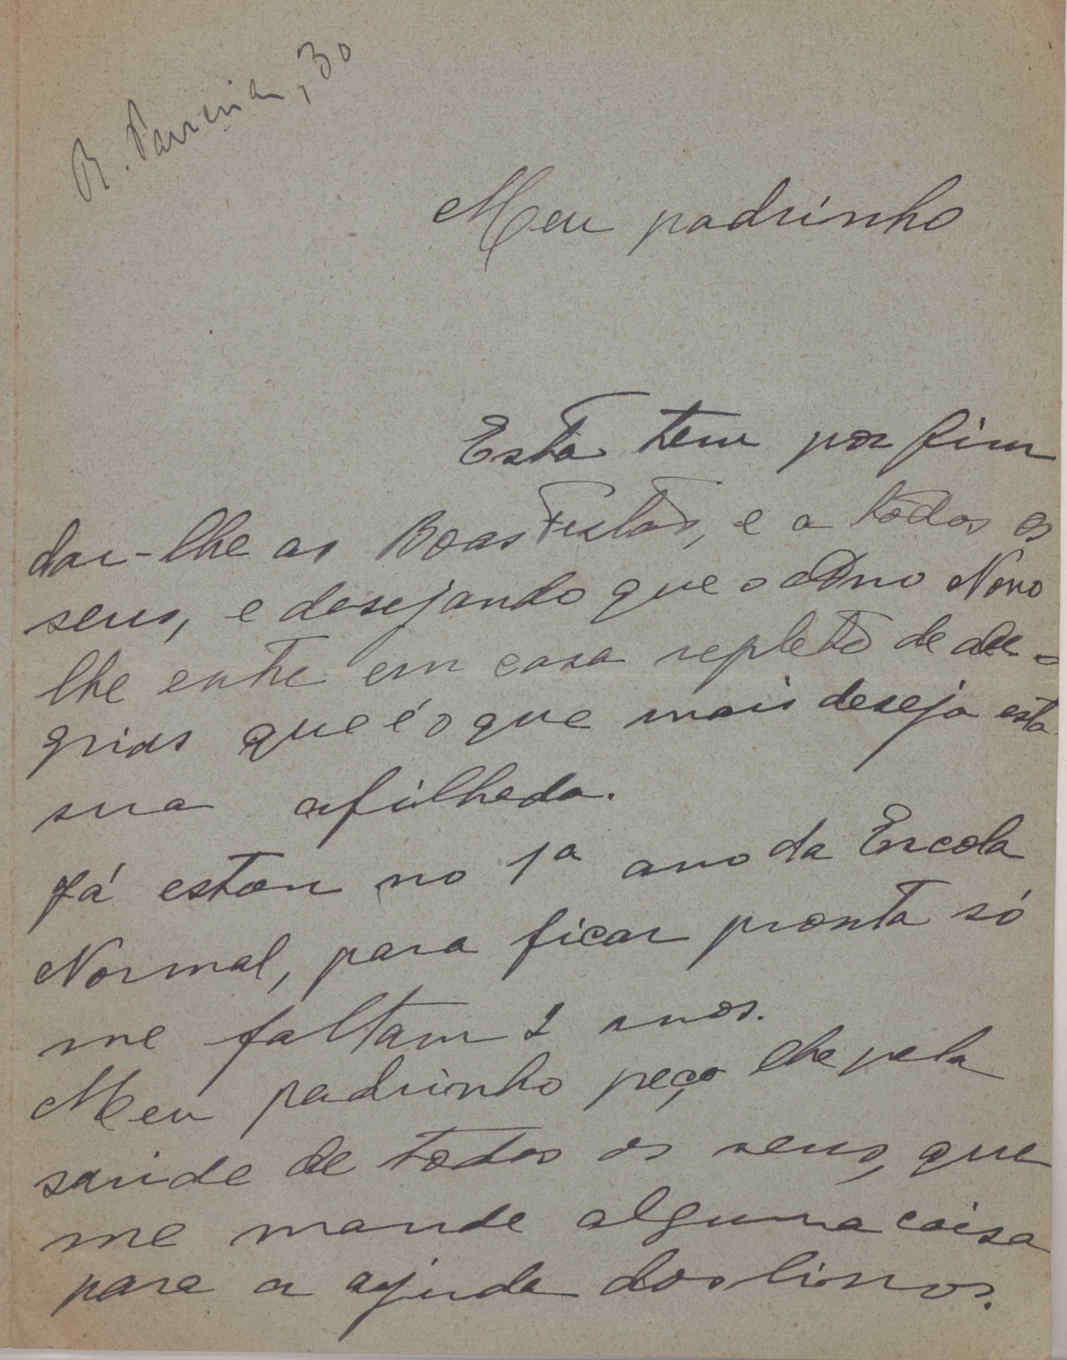 R. Parreiral, 30
Meu padrinho
Esta tem por fim
dar-lhe as Boas Festas, e a todos os
seus, e desejando que o Ano Novo
lhe entre em casa repleto de ale-
grias que é o que mais deseja esta
sua afilhada.
Já estou no 1º ano da Escola
Normal, para ficar pronta só
me faltam 2 anos.
Meu padrinho peço lhe pela
saúde de todos os seus, que
me mande alguma coisa
para a ajuda dos livros.